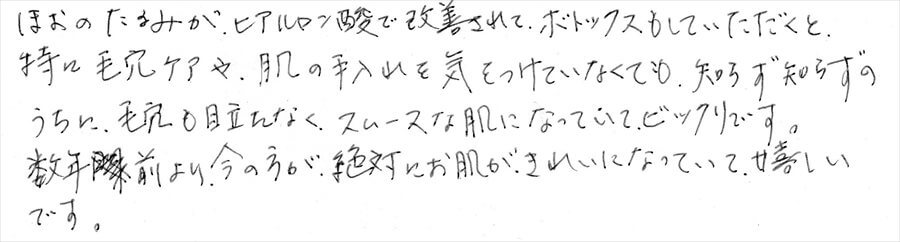 ほおのたるみが、ヒアルロン酸で改善されて、ボトックスもしていただくと、
特に毛穴ケアや、肌の手入れを気をつけていなくても、知らず知らずの
うちに、毛穴も目立たなく、スムースな肌になっていて、ビックリです。
数年前より、今の方が、絶対にお肌が、きれいになっていて、嬉しい
です。